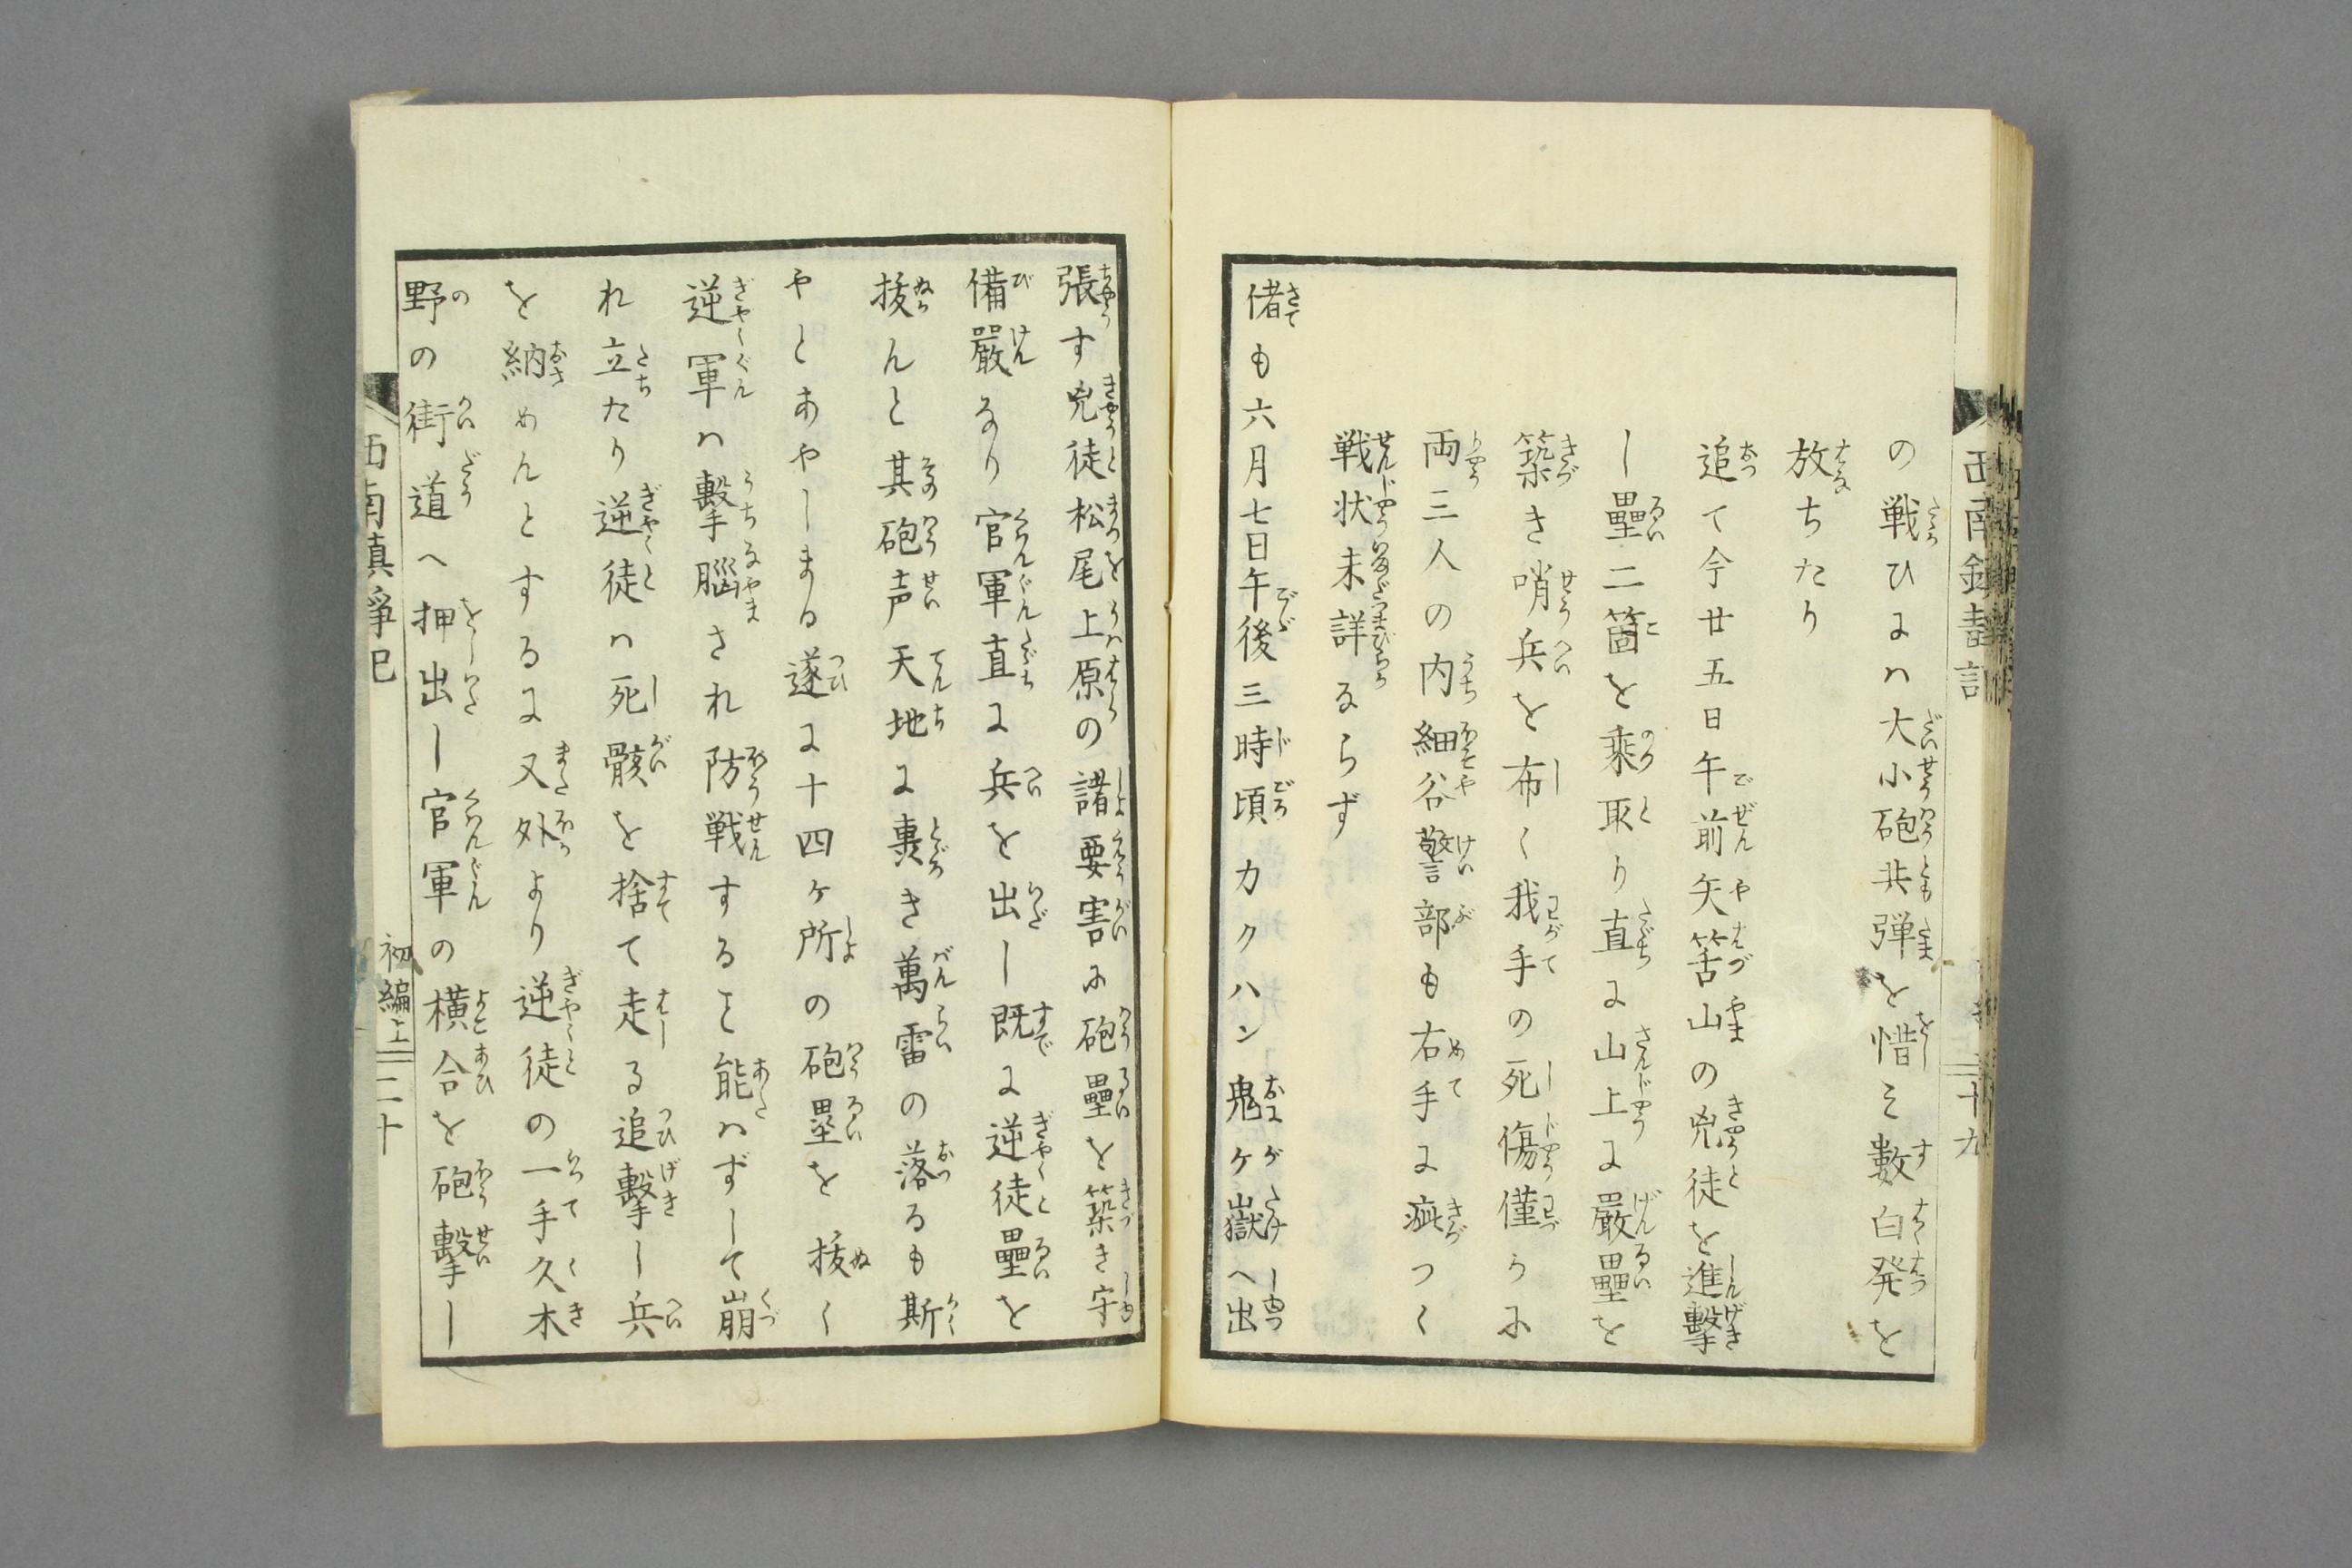 の戦ひにハ大小砲共弾を惜ミ數白発を
放ちたり
追て今廿五日午前矢筈山の兇徒を進撃
し壘二箇を乗取り直に山上に嚴壘を
築き哨兵を布く我手の死傷僅うに
両三人の内細谷警部も右手に疵つく
戦状未詳るらず
偖も六月七日午後三時頃カクハン鬼ヶ嶽へ出
張す兇徒松尾上原の諸要害に砲壘を築き守
備嚴なり官軍直に兵を出し既に逆徒壘を
抜んと其砲声天地に轟き萬雷の落るも斯
やとあやしまる遂に十四ヶ所の砲塁を抜く
逆軍ハ擊腦され防戦すること能ハずして崩
れ立たり逆徒ハ死骸を捨て走る追擊し兵
を納めんとするに又外より逆徒の一手久木
野の街道へ押出し官軍の横合を砲擊し
初編上 二十